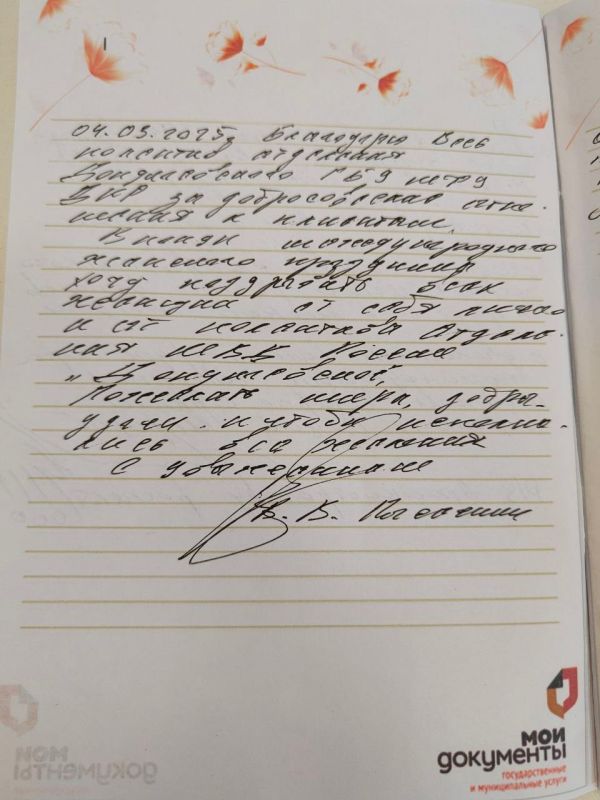 04.03.2025г. Благодарю весь
коллектив отделения
за добросовестное отно-
шения к клиентам.
В канун международного
женского праздника
хочу поздравить всех
женщин от себя лично
и от коллектива отделе-
ния России
Пожелать мира, добра,
удачи и чтобы исполня-
лись все желания
С уважением
В. В.
МОИ
ДОКУМЕНТЫ
государственные
и муниципальные услуги